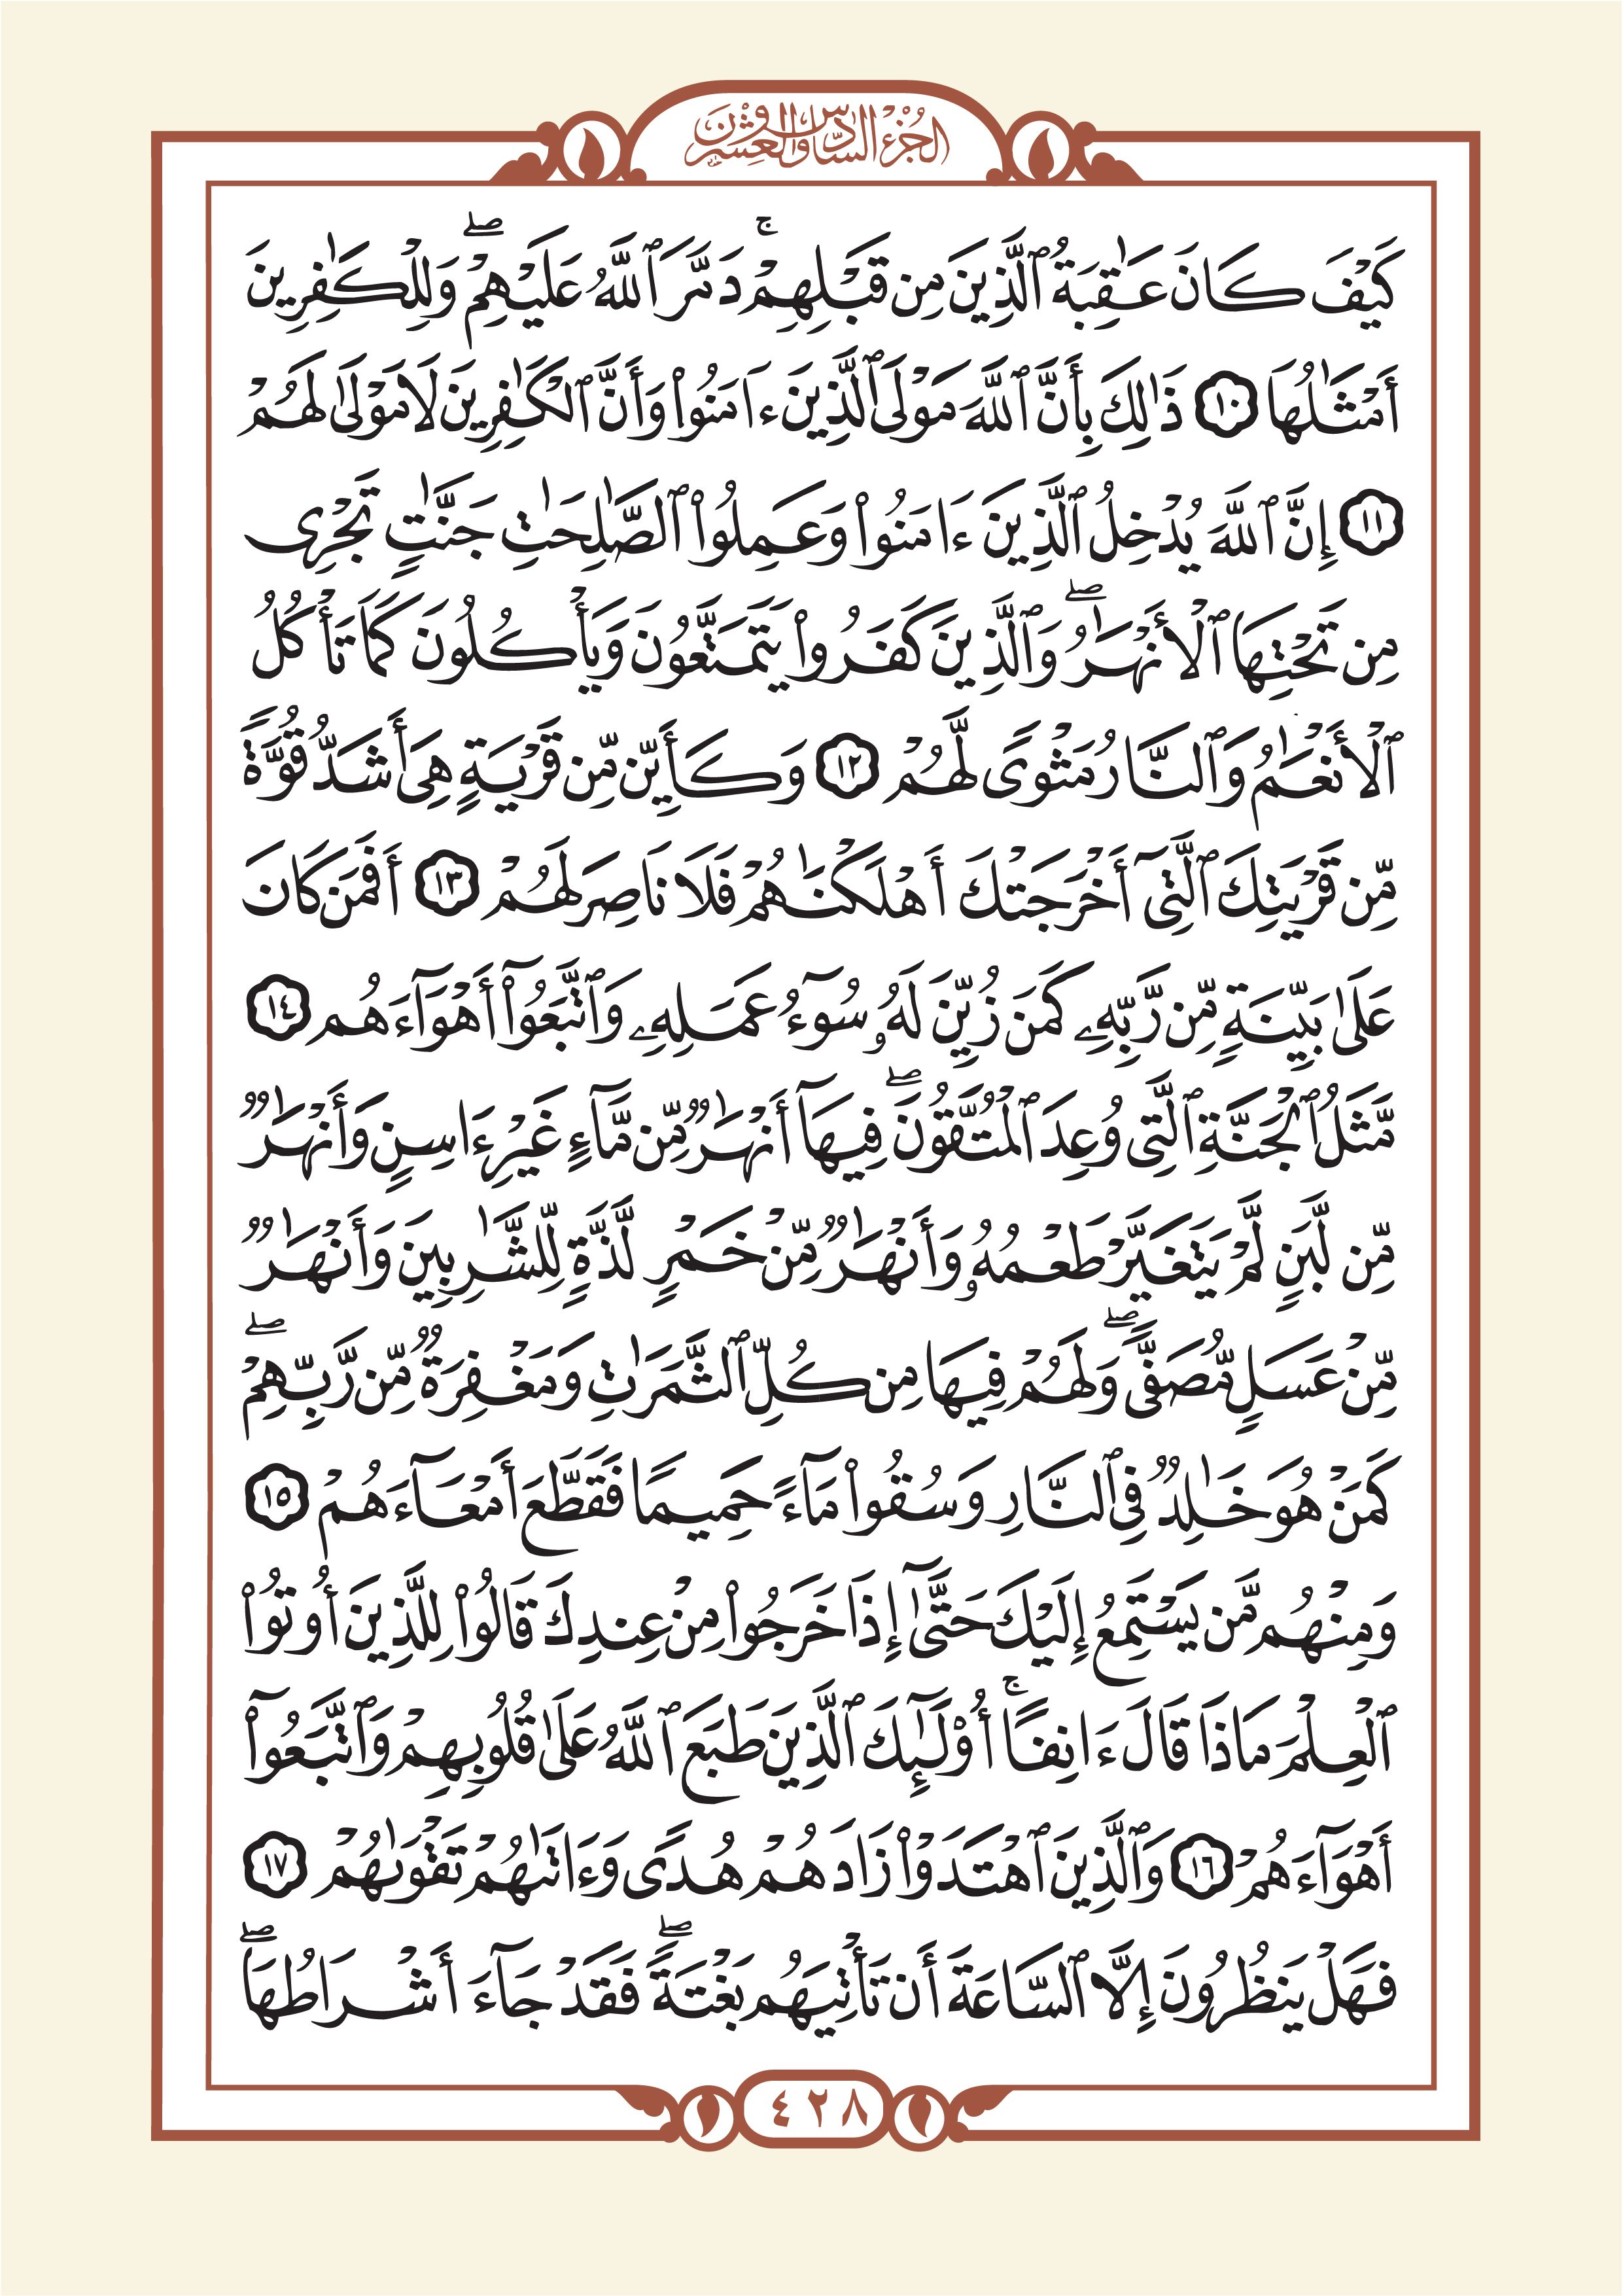 الجزء السادس والعشرون
كَيْفَ كَانَ عَٰقِبَةُ ٱلَّذِينَ مِن قَبْلِهِمْۚ دَمَّرَ ٱللَّهُ عَلَيْهِمْۖ وَلِلْكَٰفِرِينَ
أَمْثَٰلُهَا ١٠ ذَٰلِكَ بِأَنَّ ٱللَّهَ مَوْلَى ٱلَّذِينَ ءَامَنُوا۟ وَأَنَّ ٱلْكَٰفِرِينَ لَا مَوْلَىٰ لَهُمْ
١١ إِنَّ ٱللَّهَ يُدْخِلُ ٱلَّذِينَ ءَامَنُوا۟ وَعَمِلُوا۟ ٱلصَّٰلِحَٰتِ جَنَّٰتٍ تَجْرِى
مِن تَحْتِهَا ٱلْأَنْهَٰرُۖ وَٱلَّذِينَ كَفَرُوا۟ يَتَمَتَّعُونَ وَيَأْكُلُونَ كَمَا تَأْكُلُ
ٱلْأَنْعَٰمُ وَٱلنَّارُ مَثْوًى لَّهُمْ ١٢ وَكَأَيِّن مِّن قَرْيَةٍ هِىَ أَشَدُّ قُوَّةً
مِّن قَرْيَتِكَ ٱلَّتِىٓ أَخْرَجَتْكَ أَهْلَكْنَٰهُمْ فَلَا نَاصِرَ لَهُمْ ١٣ أَفَمَن كَانَ
عَلَىٰ بَيِّنَةٍ مِّن رَّبِّهِۦ كَمَن زُيِّنَ لَهُۥ سُوٓءُ عَمَلِهِۦ وَٱتَّبَعُوٓا۟ أَهْوَآءَهُم ١٤
مَّثَلُ ٱلْجَنَّةِ ٱلَّتِى وُعِدَ ٱلْمُتَّقُونَۖ فِيهَآ أَنْهَٰرٌ مِّن مَّآءٍ غَيْرِ ءَاسِنٍ وَأَنْهَٰرٌ
مِّن لَّبَنٍ لَّمْ يَتَغَيَّرْ طَعْمُهُۥ وَأَنْهَٰرٌ مِّنْ خَمْرٍ لَّذَّةٍ لِّلشَّٰرِبِينَ وَأَنْهَٰرٌ
مِّنْ عَسَلٍ مُّصَفًّىۖ وَلَهُمْ فِيهَا مِن كُلِّ ٱلثَّمَرَٰتِ وَمَغْفِرَةٌ مِّن رَّبِّهِمْۖ
كَمَنْ هُوَ خَٰلِدٌ فِى ٱلنَّارِ وَسُقُوا۟ مَآءً حَمِيمًا فَقَطَّعَ أَمْعَآءَهُمْ ١٥
وَمِنْهُم مَّن يَسْتَمِعُ إِلَيْكَ حَتَّىٰٓ إِذَا خَرَجُوا۟ مِنْ عِندِكَ قَالُوا۟ لِلَّذِينَ أُوتُوا۟
ٱلْعِلْمَ مَاذَا قَالَ ءَانِفًاۚ أُو۟لَٰٓئِكَ ٱلَّذِينَ طَبَعَ ٱللَّهُ عَلَىٰ قُلُوبِهِمْ وَٱتَّبَعُوٓا۟
أَهْوَآءَهُمْ ١٦ وَٱلَّذِينَ ٱهْتَدَوْا۟ زَادَهُمْ هُدًى وَءَاتَىٰهُمْ تَقْوَىٰهُمْ ١٧
فَهَلْ يَنظُرُونَ إِلَّا ٱلسَّاعَةَ أَن تَأْتِيَهُم بَغْتَةًۖ فَقَدْ جَآءَ أَشْرَاطُهَاۖ
٤٢٨